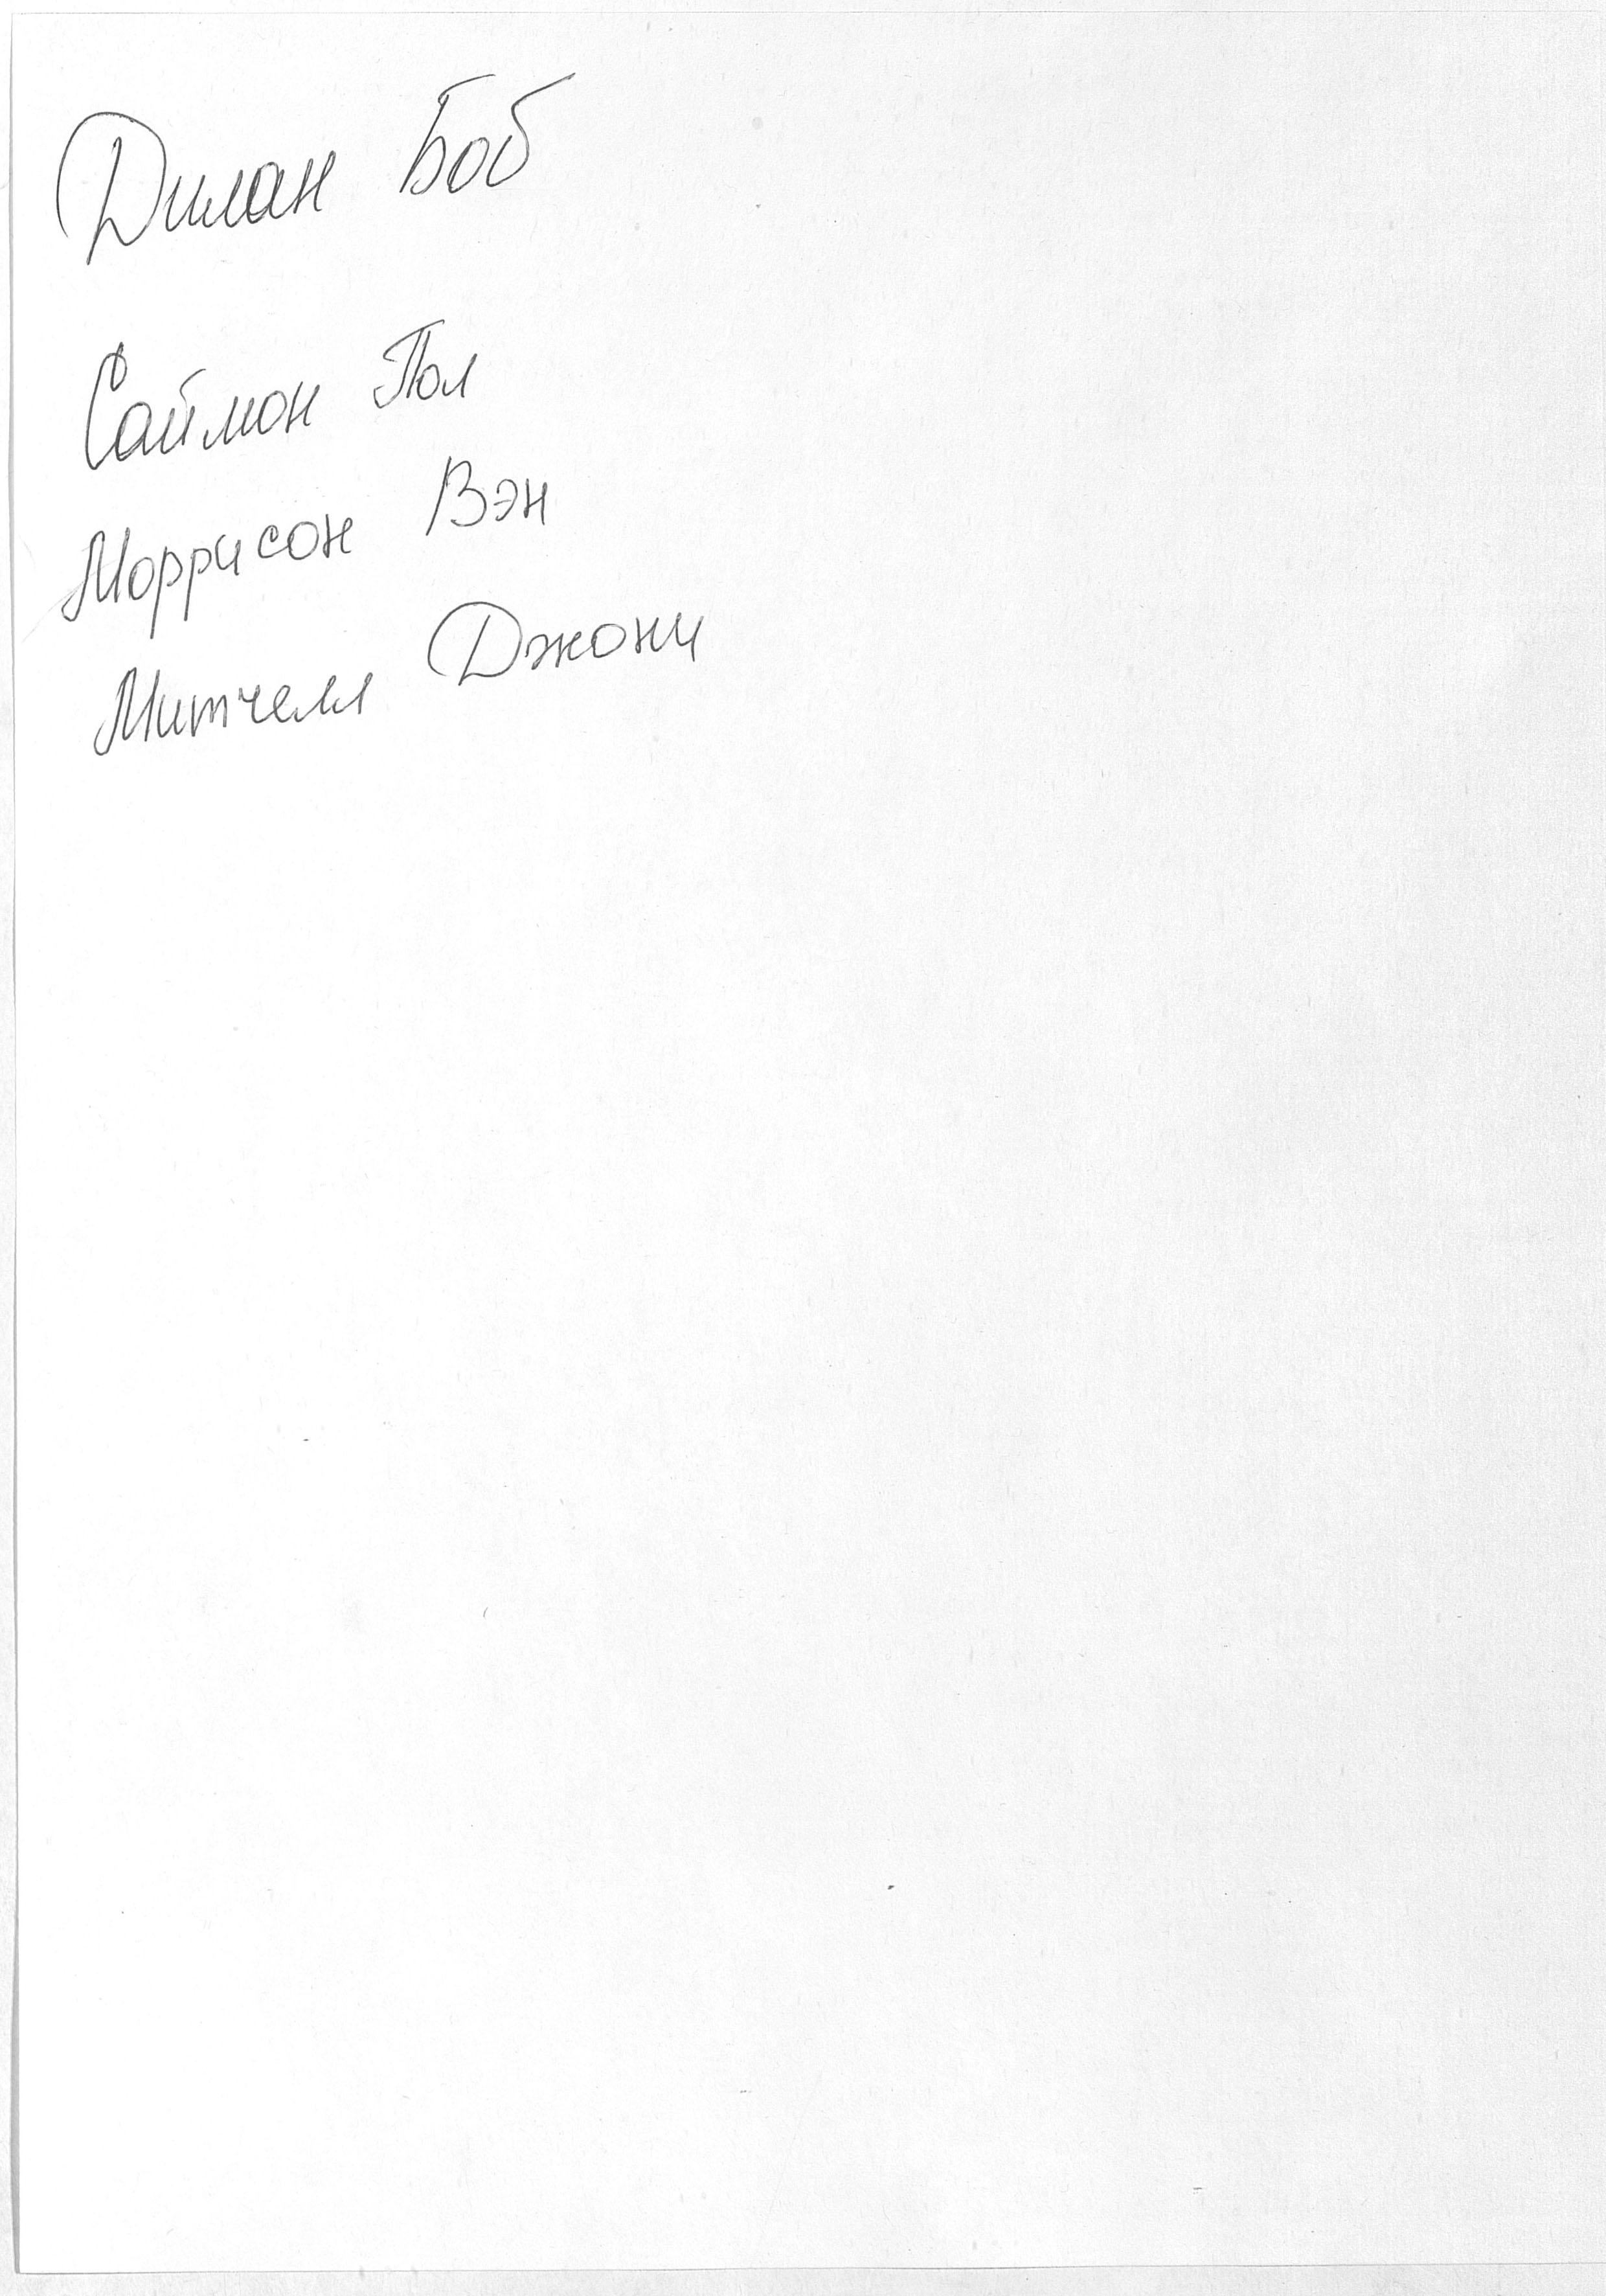 Дилан Боб
Саймон Пол
Моррисон Вэн
Митчелл Джони